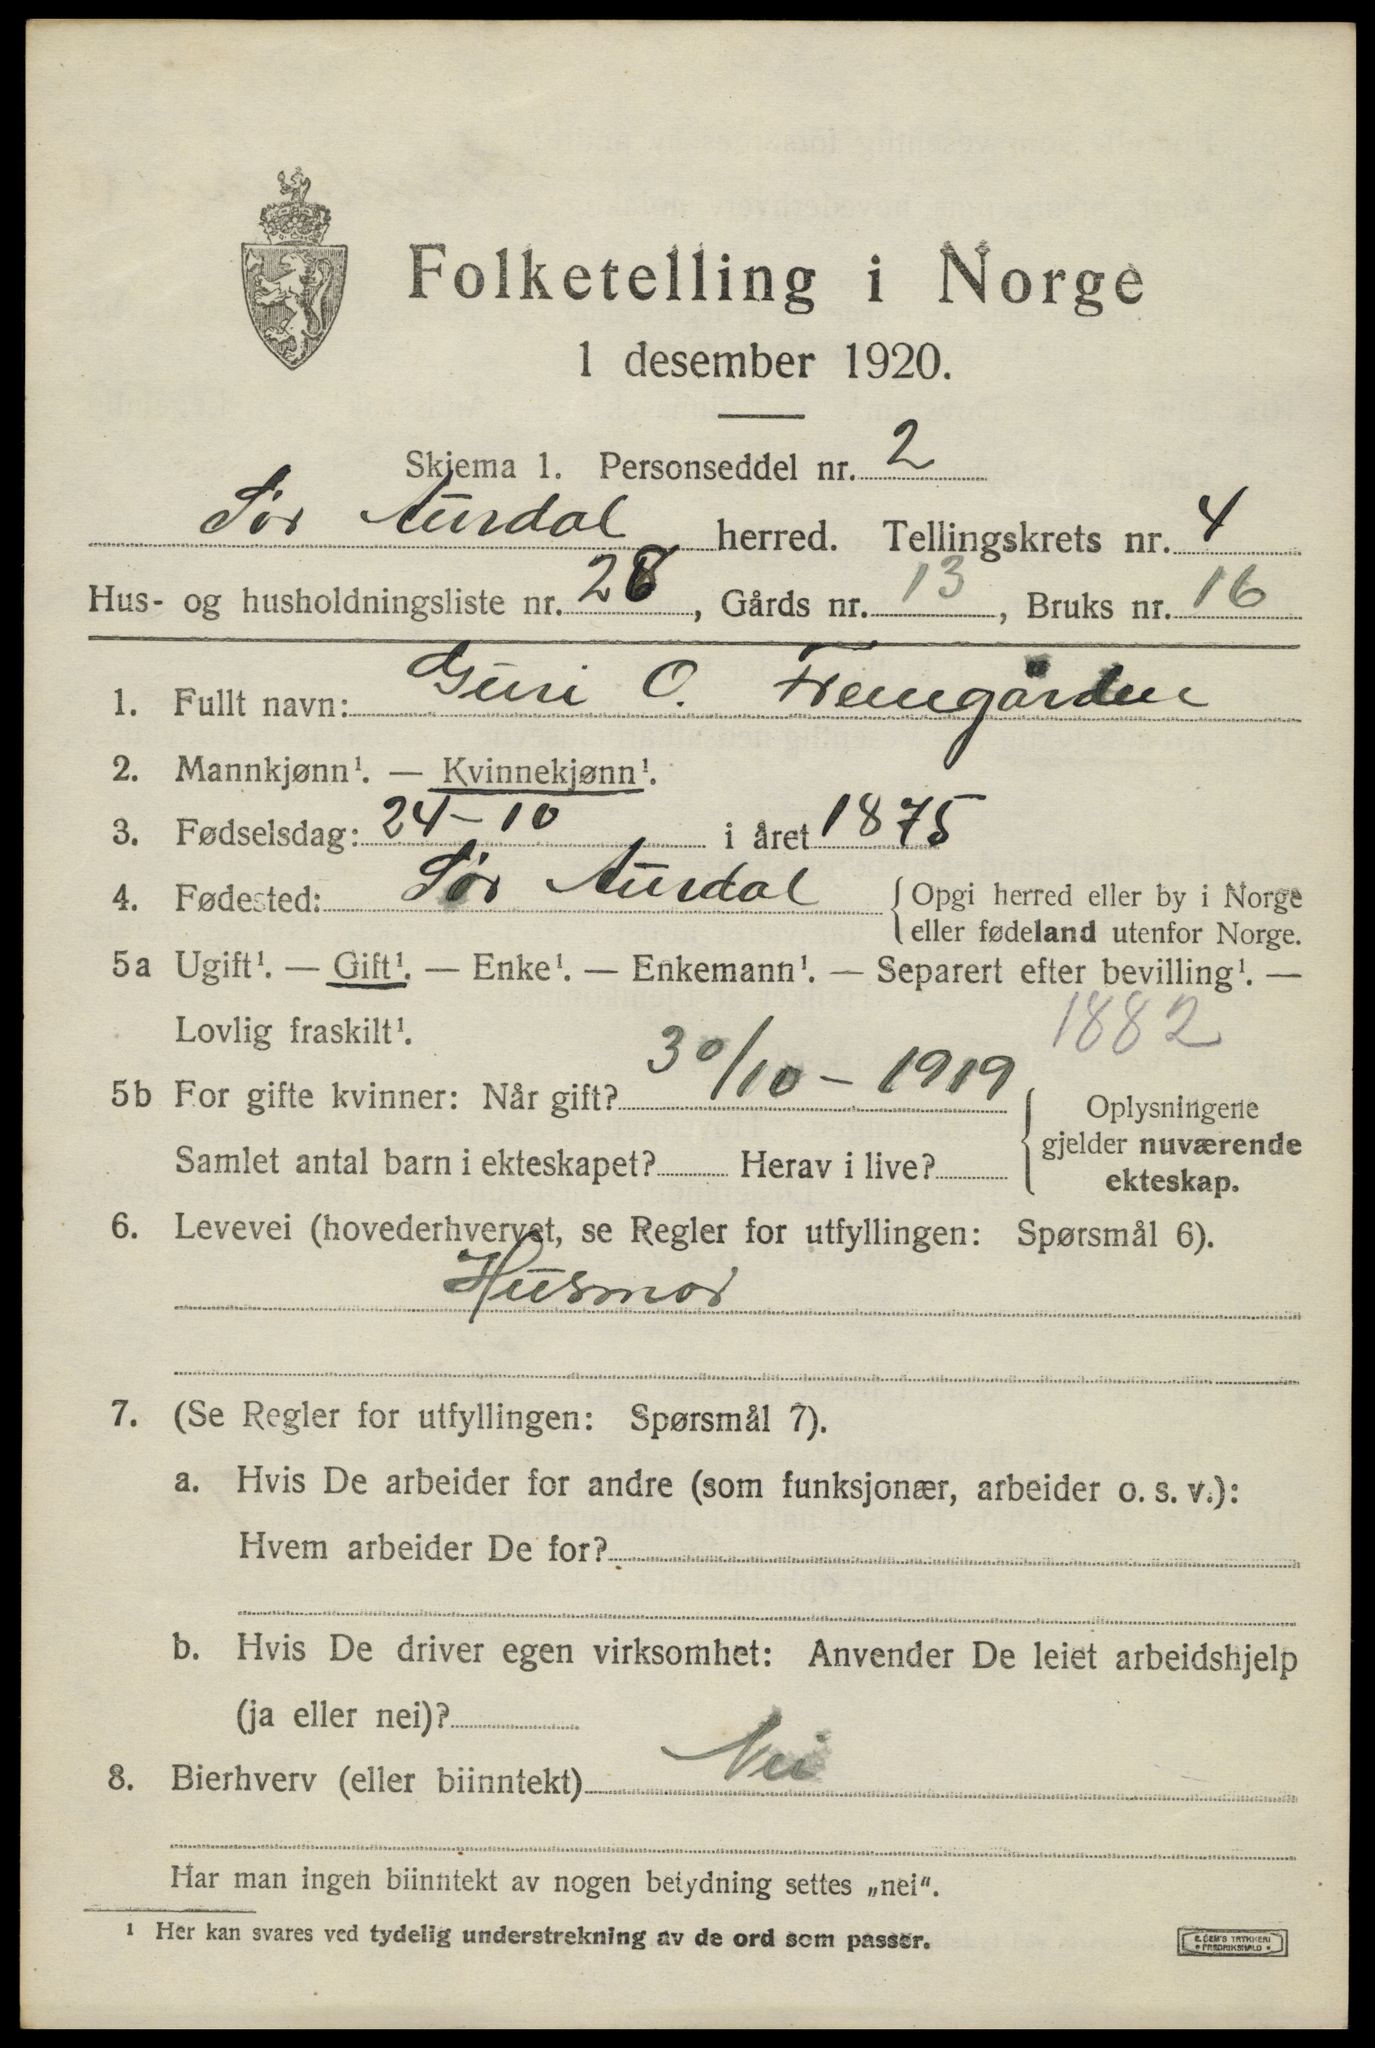 Folketelling i Norge
1 desember 1920.
Skjema 1. Personseddel nr. 2
Sør Aurdal herred. Tellingskrets nr. 4
Hus- og husholdningsliste nr. 28, Gårds nr. 13, Bruks nr. 16
1. Fullt navn: Guri O. Fremgården
2. Mannkjønn¹. — Kvinnekjønn¹.
3. Fødselsdag: 24-10 i året 1875
4. Fødested: Sør Aurdal { Opgi herred eller by i Norge
eller fødeland utenfor Norge.
5a Ugift¹. — Gift¹. — Enke¹. — Enkemann¹. — Separert efter bevilling¹. —
Lovlig fraskilt¹. 1882
5b For gifte kvinner: Når gift? 30/10 - 1919 { Oplysningene
gjelder nuværende
Samlet antal barn i ekteskapet? Herav i live?
ekteskap.
6. Levevei (hovederhvervet, se Regler for utfyllingen: Spørsmål 6).
Husmor
7. (Se Regler for utfyllingen: Spørsmål 7).
a. Hvis De arbeider for andre (som funksjonær, arbeider o. s. v.):
Hvem arbeider De for?
b. Hvis De driver egen virksomhet: Anvender De leiet arbeidshjelp
(ja eller nei)?
8. Bierhverv (eller biinntekt) Nei
Har man ingen biinntekt av nogen betydning settes „nei“.
¹ Her kan svares ved tydelig understrekning av de ord som passer.
E. SEM'S TRYKKERI
* FREDRIKSHALD *